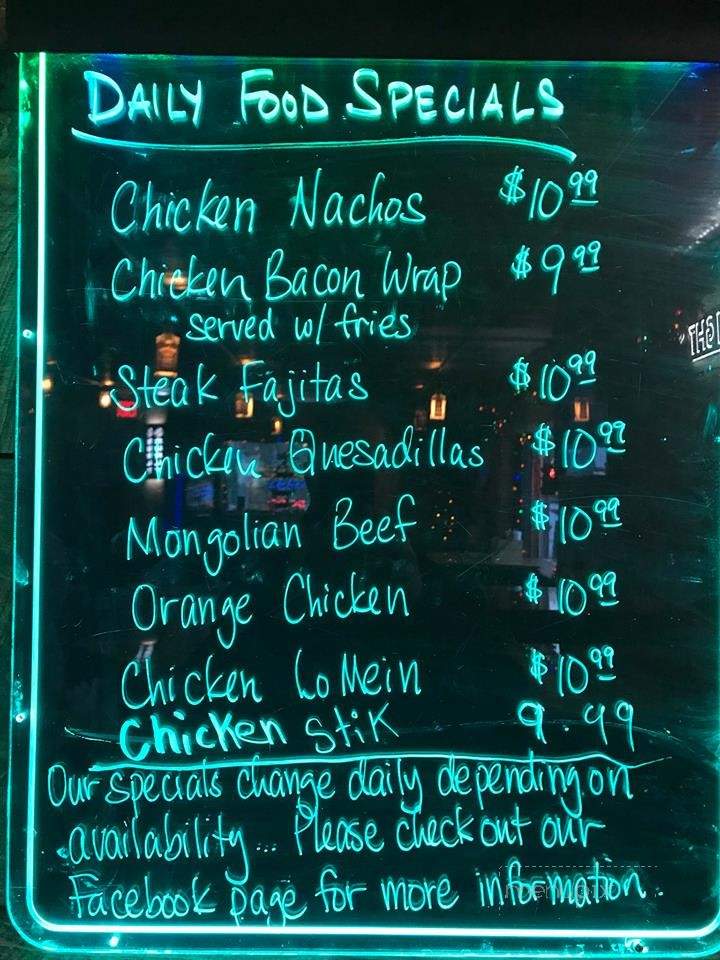 DAILY FOOD SPECIALS
Chicken Nachos $10.99
Chicken Bacon Wrap $9.99
served w/ fries
Steak Fajitas $10.99
Chicken Quesadillas $10.99
Mongolian Beef $10.99
Orange Chicken $10.99
Chicken Lo Mein $10.99
Chicken Stik 9.99
Our specials change daily depending on
availability... Please check out our
Facebook page for more information.